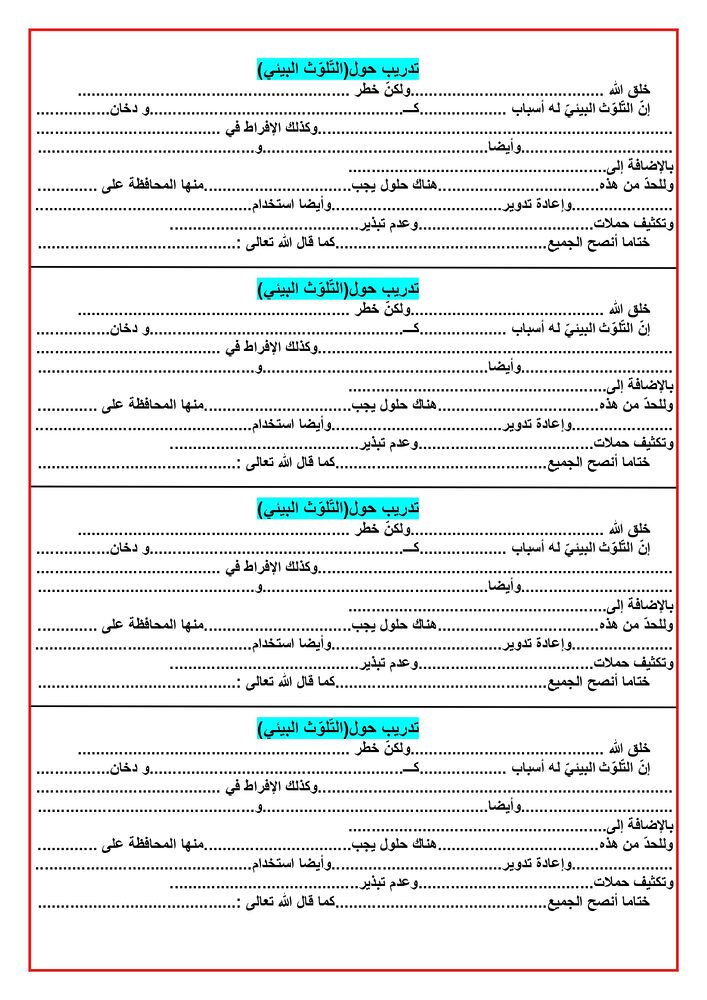 تدريب حول(التّلوّث البيئي)
خلق الله ..........................................ولكنّ خطر ...........................................................
إنّ التّلوّث البيئيّ له أسباب ...................كــ.......................................................و دخان................
.............................................................................وكذلك الإفراط في ........................................
.................................وأيضا.................................................و...............................................
بالإضافة إلى........................................................
وللحدّ من هذه...................................هناك حلول يجب................................منها المحافظة على .............
......................وإعادة تدوير.....................................وأيضا استخدام...............................................
وتكثيف حملات......................................وعدم تبذير.........................................
ختاما أنصح الجميع..............................................كما قال الله تعالى :...........................................
تدريب حول(التّلوّث البيئي)
خلق الله ..........................................ولكنّ خطر ...........................................................
إنّ التّلوّث البيئيّ له أسباب ...................كــ.......................................................و دخان................
.............................................................................وكذلك الإفراط في ........................................
.................................وأيضا.................................................و...............................................
بالإضافة إلى........................................................
وللحدّ من هذه...................................هناك حلول يجب................................منها المحافظة على .............
......................وإعادة تدوير.....................................وأيضا استخدام...............................................
وتكثيف حملات......................................وعدم تبذير.........................................
ختاما أنصح الجميع..............................................كما قال الله تعالى :...........................................
تدريب حول(التّلوّث البيئي)
خلق الله ..........................................ولكنّ خطر ...........................................................
إنّ التّلوّث البيئيّ له أسباب ...................كــ.......................................................و دخان................
.............................................................................وكذلك الإفراط في ........................................
.................................وأيضا.................................................و...............................................
بالإضافة إلى........................................................
وللحدّ من هذه...................................هناك حلول يجب................................منها المحافظة على .............
......................وإعادة تدوير.....................................وأيضا استخدام...............................................
وتكثيف حملات......................................وعدم تبذير.........................................
ختاما أنصح الجميع..............................................كما قال الله تعالى :...........................................
تدريب حول(التّلوّث البيئي)
خلق الله ..........................................ولكنّ خطر ...........................................................
إنّ التّلوّث البيئيّ له أسباب ...................كــ.......................................................و دخان................
.............................................................................وكذلك الإفراط في ........................................
.................................وأيضا.................................................و...............................................
بالإضافة إلى........................................................
وللحدّ من هذه...................................هناك حلول يجب................................منها المحافظة على .............
......................وإعادة تدوير.....................................وأيضا استخدام...............................................
وتكثيف حملات......................................وعدم تبذير.........................................
ختاما أنصح الجميع..............................................كما قال الله تعالى :...........................................